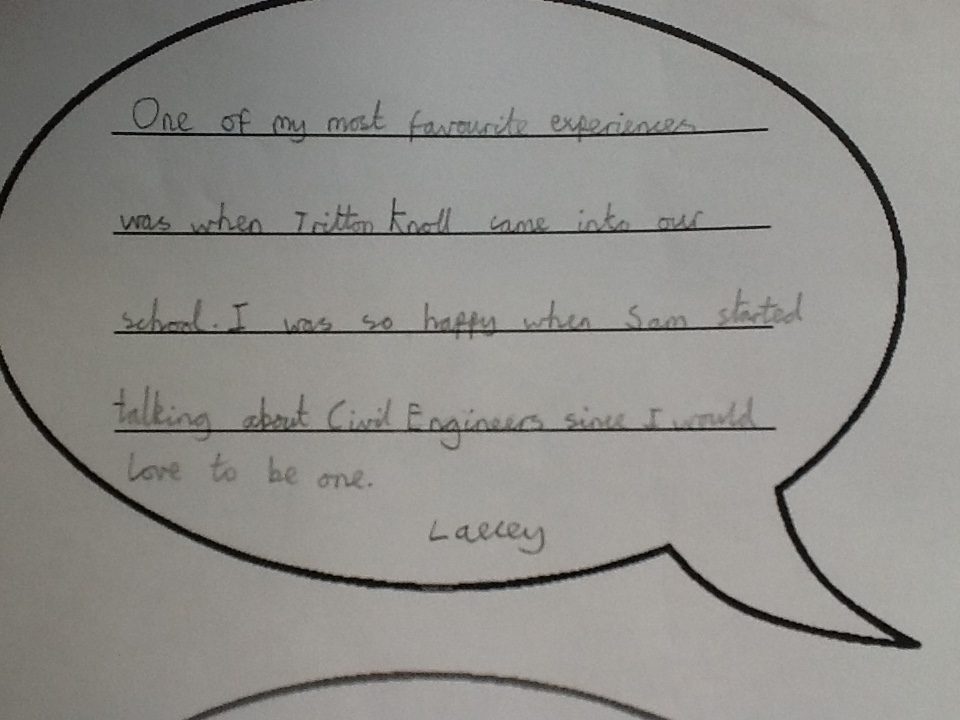 One of my most favourite experiences
was when Tritton Knoll came into our
school. I was so happy when Sam started
talking about Civil Engineers since I would
love to be one.